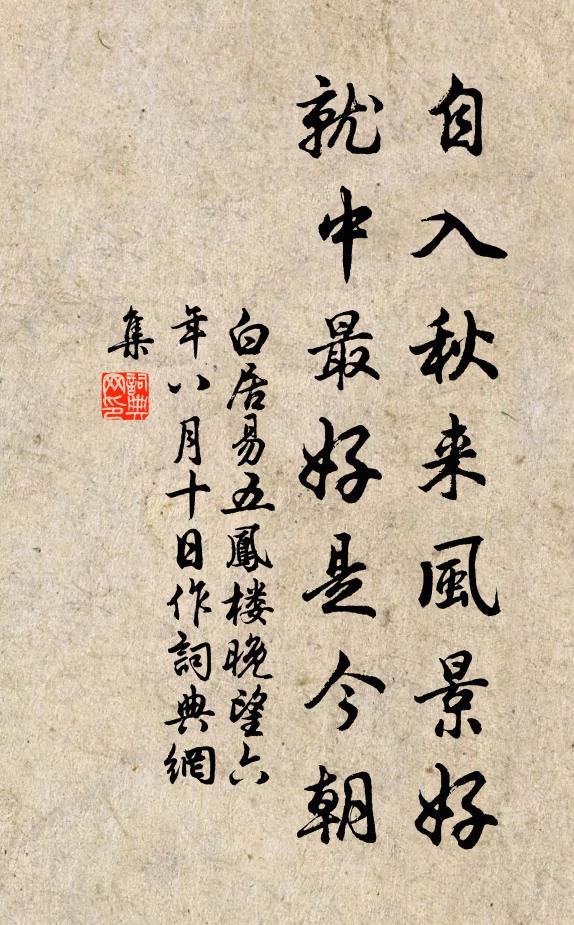 自入秋来風景好
就中最好是今朝
白居易五鳳楼晚望六
年八月十日作詞典網
集
詞典
网印